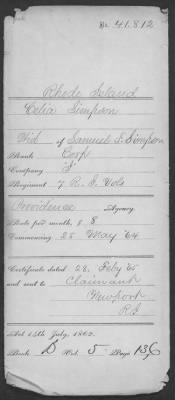 No. 41,812
Rhode Island
Celia Simpson
Wid of Samuel S. Simpson
Rank Corp
Company "I"
Regiment 7 R. I. Vols
Providence Agency.
Rate per month, $ 8
Commencing 25 May '64
Certificate dated 28, Feby '65
and sent to Claimant
Newport
R I
Act 14th July, 1862.
Book D Vol. 5 Page 136